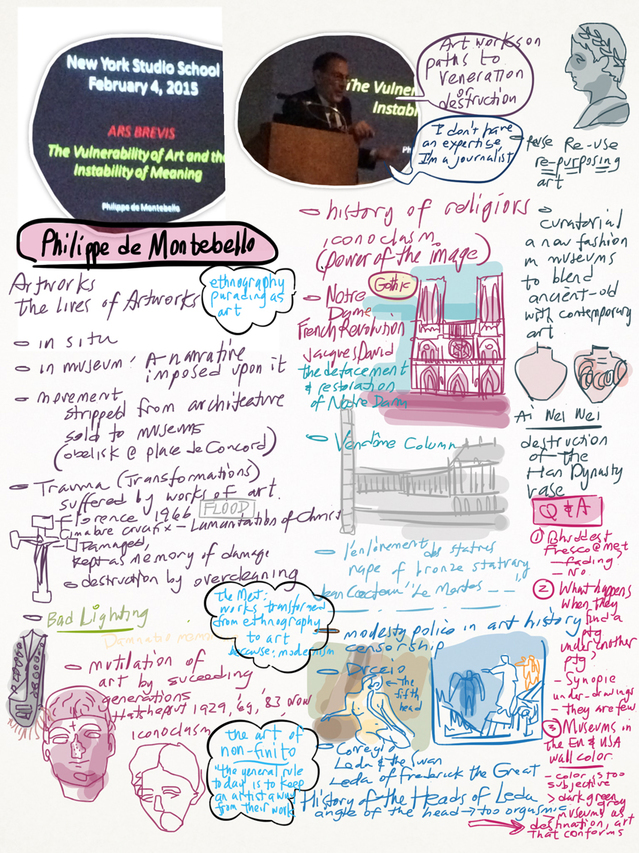 New York Studio School
February 4, 2015
ARS BREVIS
The Vulnerability of Art and the
Instability of Meaning
Philippe de Montebello
The Vulner
Instabi
Ph
Art works on
paths to
veneration
or
destruction
I don't have
an expertise
I'm a journalist
Re-use
re-purposing
art
Philippe de Montebello
Artworks
The lives of Artworks
ethnography
parading as
art
in situ
in museum: A narrative
imposed upon it
movement
stripped from architecture
sold to museums
(obelisk @ place de Concord)
Trauma (Transformations)
suffered by works of art.
Florence 1966 FLOOD
Cimabue Crucifix - Lamentation of Christ
Damaged,
kept as memory of damage
destruation by overcleaning
Bad Lighting
mutilation of
art by suceeding
generations
1929, '69, '83 now
iconoclasm
The Met:
works transformed
from ethnography
to art
because: modernism
the art of
non-finito
"the general rule
today is to keep
an artist away
from their work
history of religions
iconoclasm
(power of the image)
Notre
Dame
Gothic
French Revolution
Jacques David
the defacement
& restoration
of Notre Dam
Vendôme Column
l'enlèvement des statues
rape of bronze statuary
Jean Cocteau "Le Mortes __"
modesty police in art history
censorship
the
fifth
head
Correggio
Leda & the Swan
Leda of Frederick the Great
History of the Heads of Leda
angle of the head → too orgasmic
curatorial
a new fashion
in museums
to blend
ancient-old
with contemporary
art
Ai Wei Wei
destruction
of the
Han Dynasty
vase
Q & A
1 Bhuddest
Fresco @ met
fading
- No
2 What happens
when they
find a
ptg
under another
ptg?
- Synopie
under-drawings
- they are few
3 Museums in
the EU & USA
wall color
- color is too
subjective
> dark green,
grey
> museums as
destination, art
that conforms